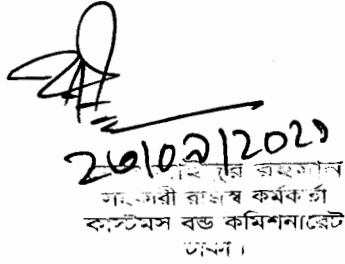 ২৩|০৯|২০২১
রহমান
সহকারী রাজস্ব কর্মকর্তা
কাস্টমস বন্ড কমিশনারেট
ঢাকা।